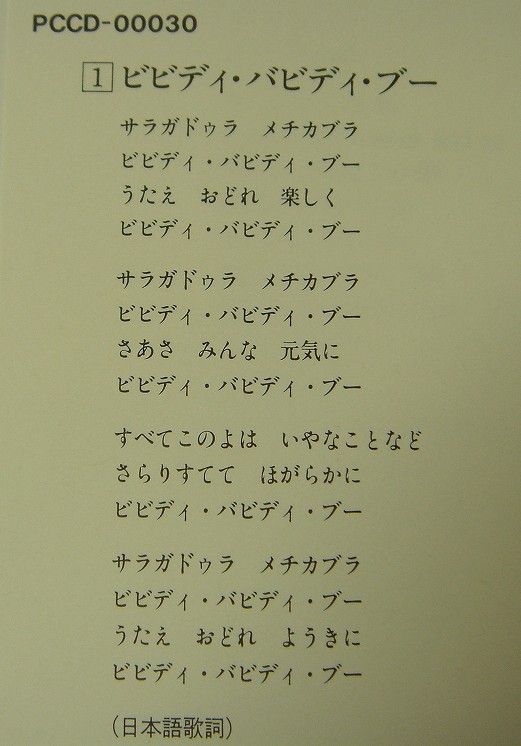 PCCD-00030
1 ビビディ・バビディ・ブー
サラガドゥラ　メチカブラ
ビビディ・バビディ・ブー
うたえ　おどれ　楽しく
ビビディ・バビディ・ブー
サラガドゥラ　メチカブラ
ビビディ・バビディ・ブー
さあさ　みんな　元気に
ビビディ・バビディ・ブー
すべてこのよは　いやなことなど
さらりすてて　ほがらかに
ビビディ・バビディ・ブー
サラガドゥラ　メチカブラ
ビビディ・バビディ・ブー
うたえ　おどれ　ようきに
ビビディ・バビディ・ブー
（日本語歌詞）